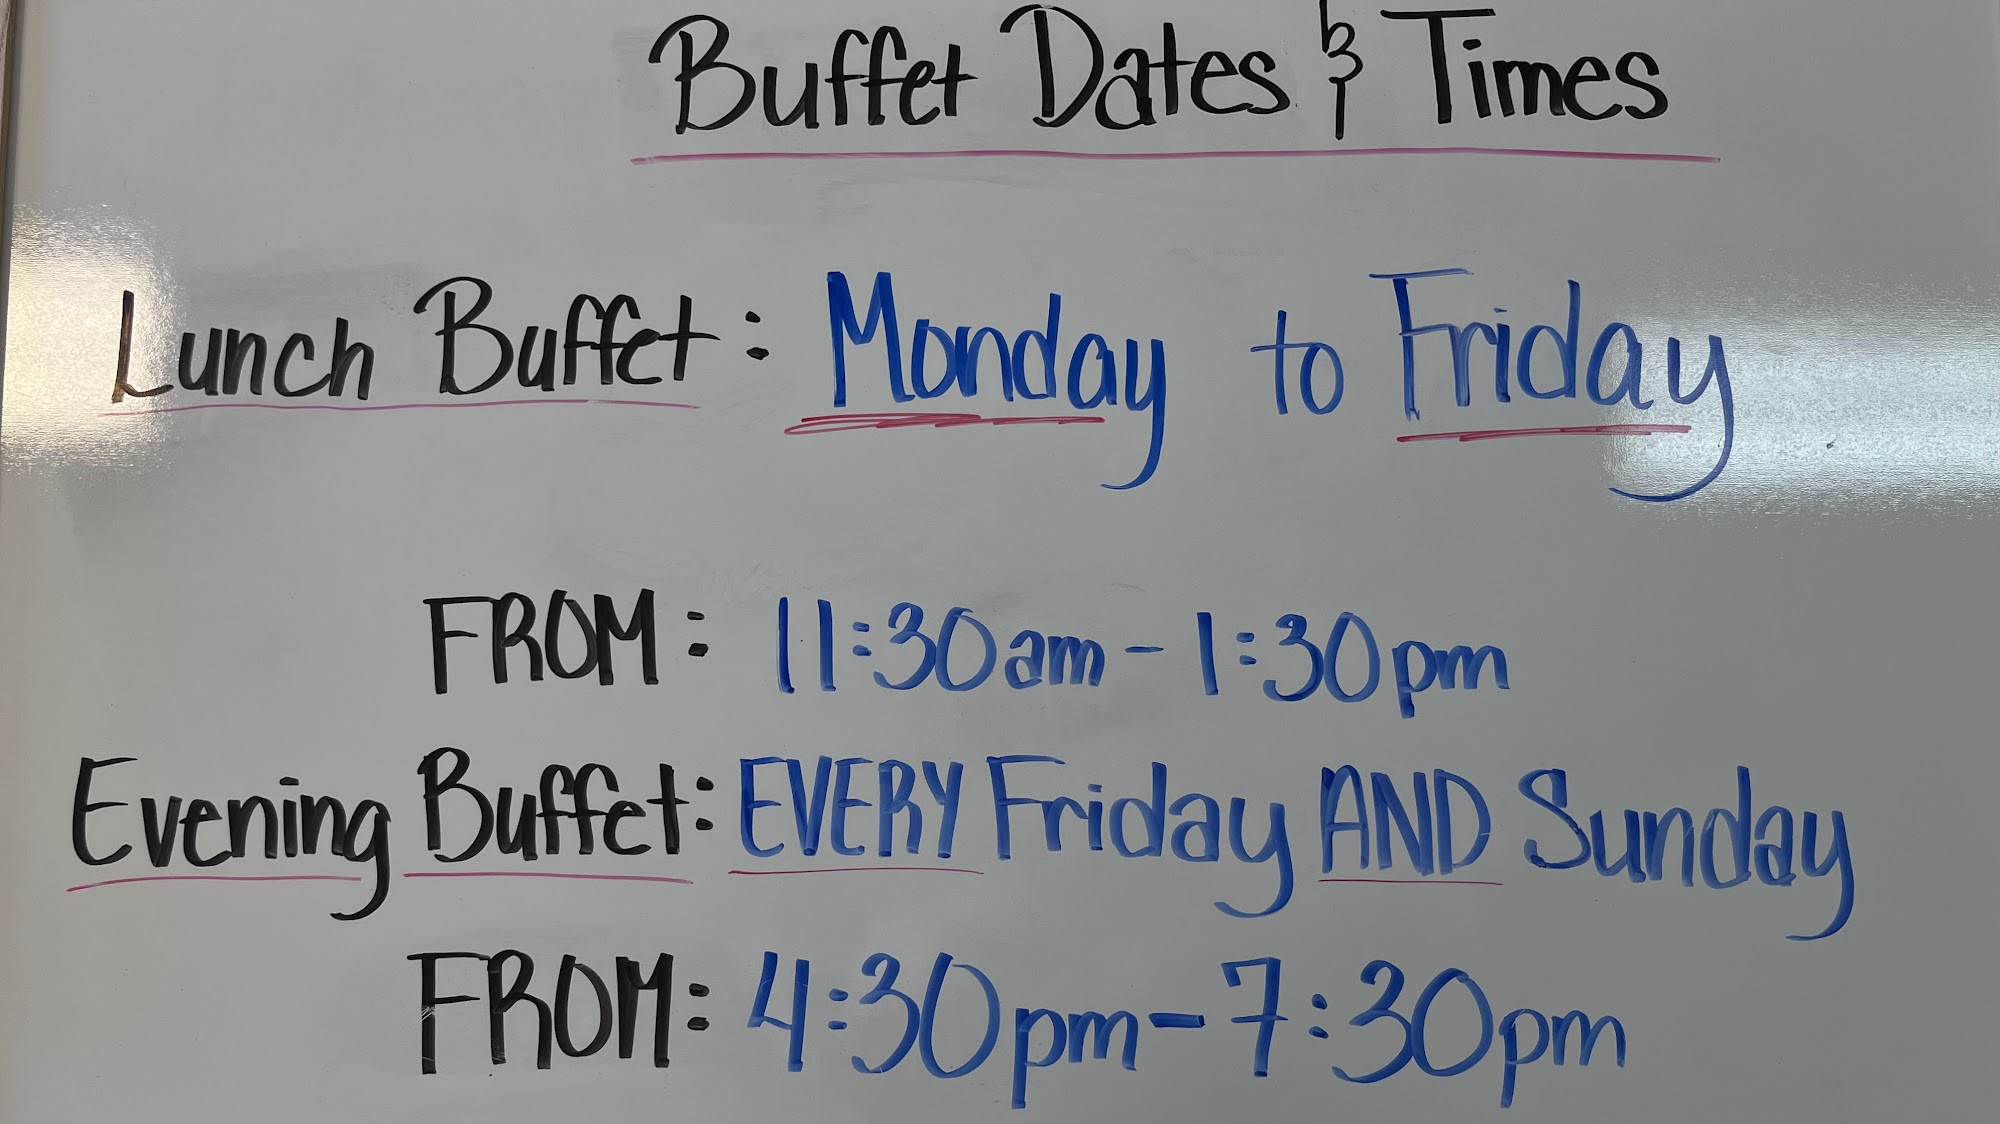 Buffet Dates & Times
Lunch Buffet: Monday to Friday
FROM: 11:30am - 1:30pm
Evening Buffet: EVERY Friday AND Sunday
FROM: 4:30pm - 7:30pm